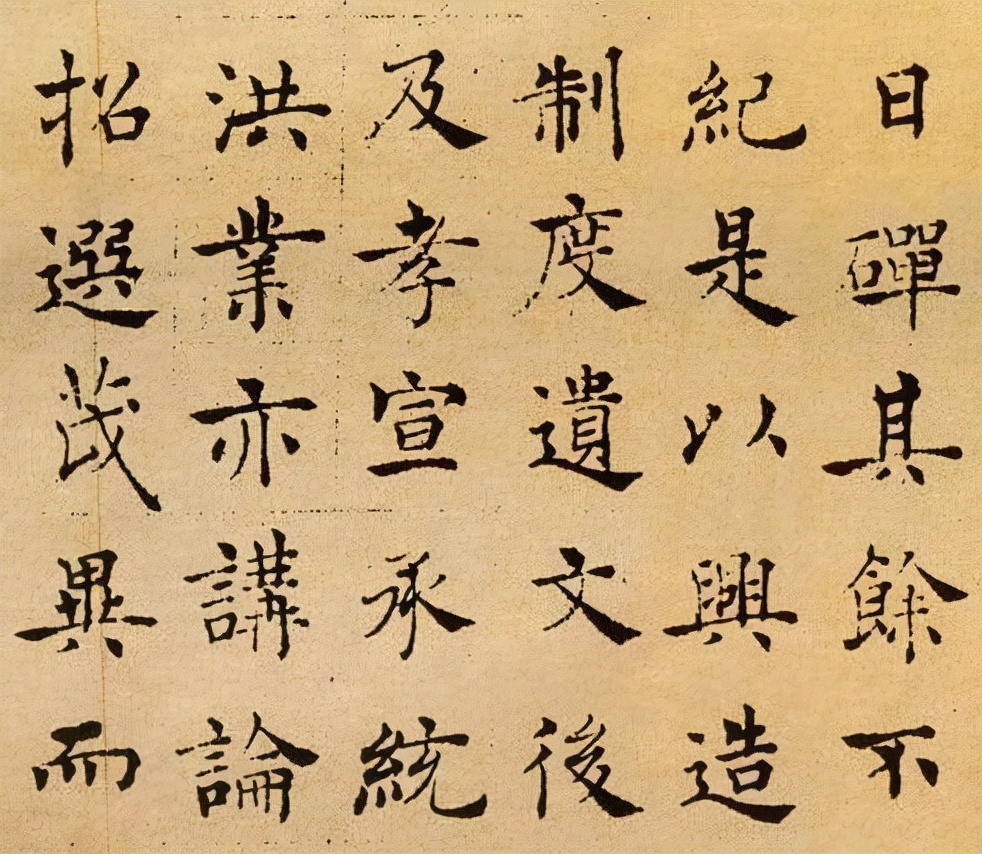 日磾其餘不
紀是以興造
制度遺文後
及孝宣承統
洪業亦講論
招選茂異而